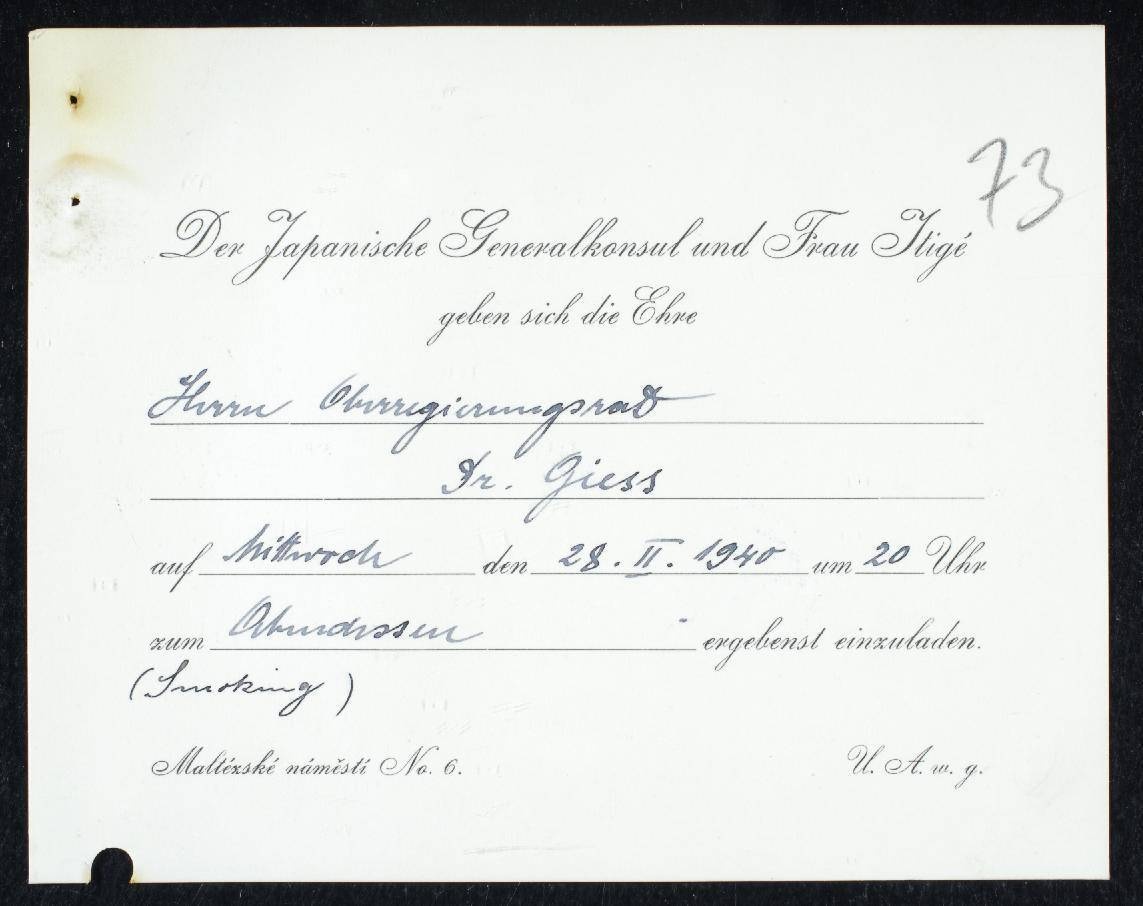 73
Der Japanische Generalkonsul und Frau Itigé
geben sich die Ehre
Herrn Oberregierungsrat
Dr. Giess
auf Mittwoch den 28. II. 1940 um 20 Uhr
zum Abendessen ergebenst einzuladen.
(Smoking)
Maltézské náměstí No. 6. U. A. w. g.